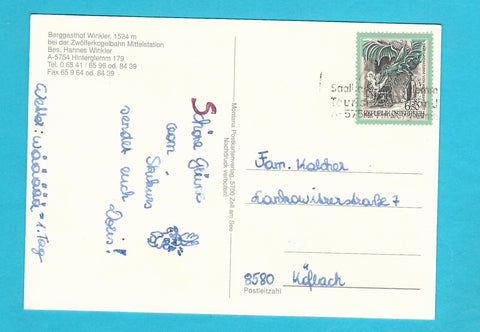 Berggasthof Winkler, 1524 m
bei der Zwölferkogelbahn Mittelstation
Bes. Hannes Winkler
A-5754 Hinterglemm 179
Tel. 0 65 41 / 65 96 od. 84 39
Fax 65 9 64 od. 84 39
Wetter: wääääää = 1. Tag
Schöne Grüsse
vom Skikurs
sendet euch
Doris!
Montana Postkartenverlag, 5700 Zell am See
Nachdruck verboten!
A-5754
Fam. Kolcher
7
8580 Köflach
Postleitzahl